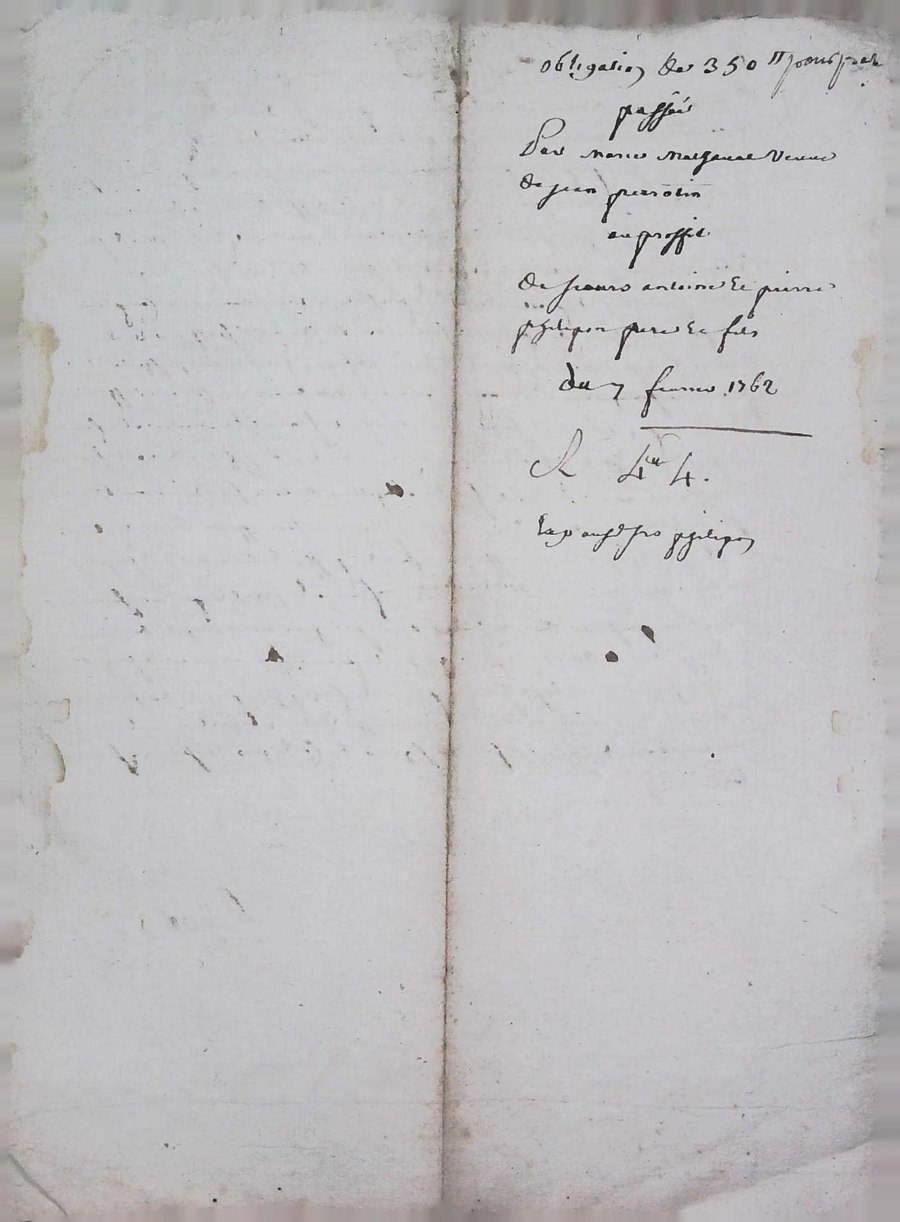 obligation de 350 ₶ pour prest
passée
Par Marie Malgaval Veuve
de jean perrotin
au proffit
de sieurs antoine Et pierre
philipon pere Et fils
du 7 fevrier 1762
4 4.
Exp philipon